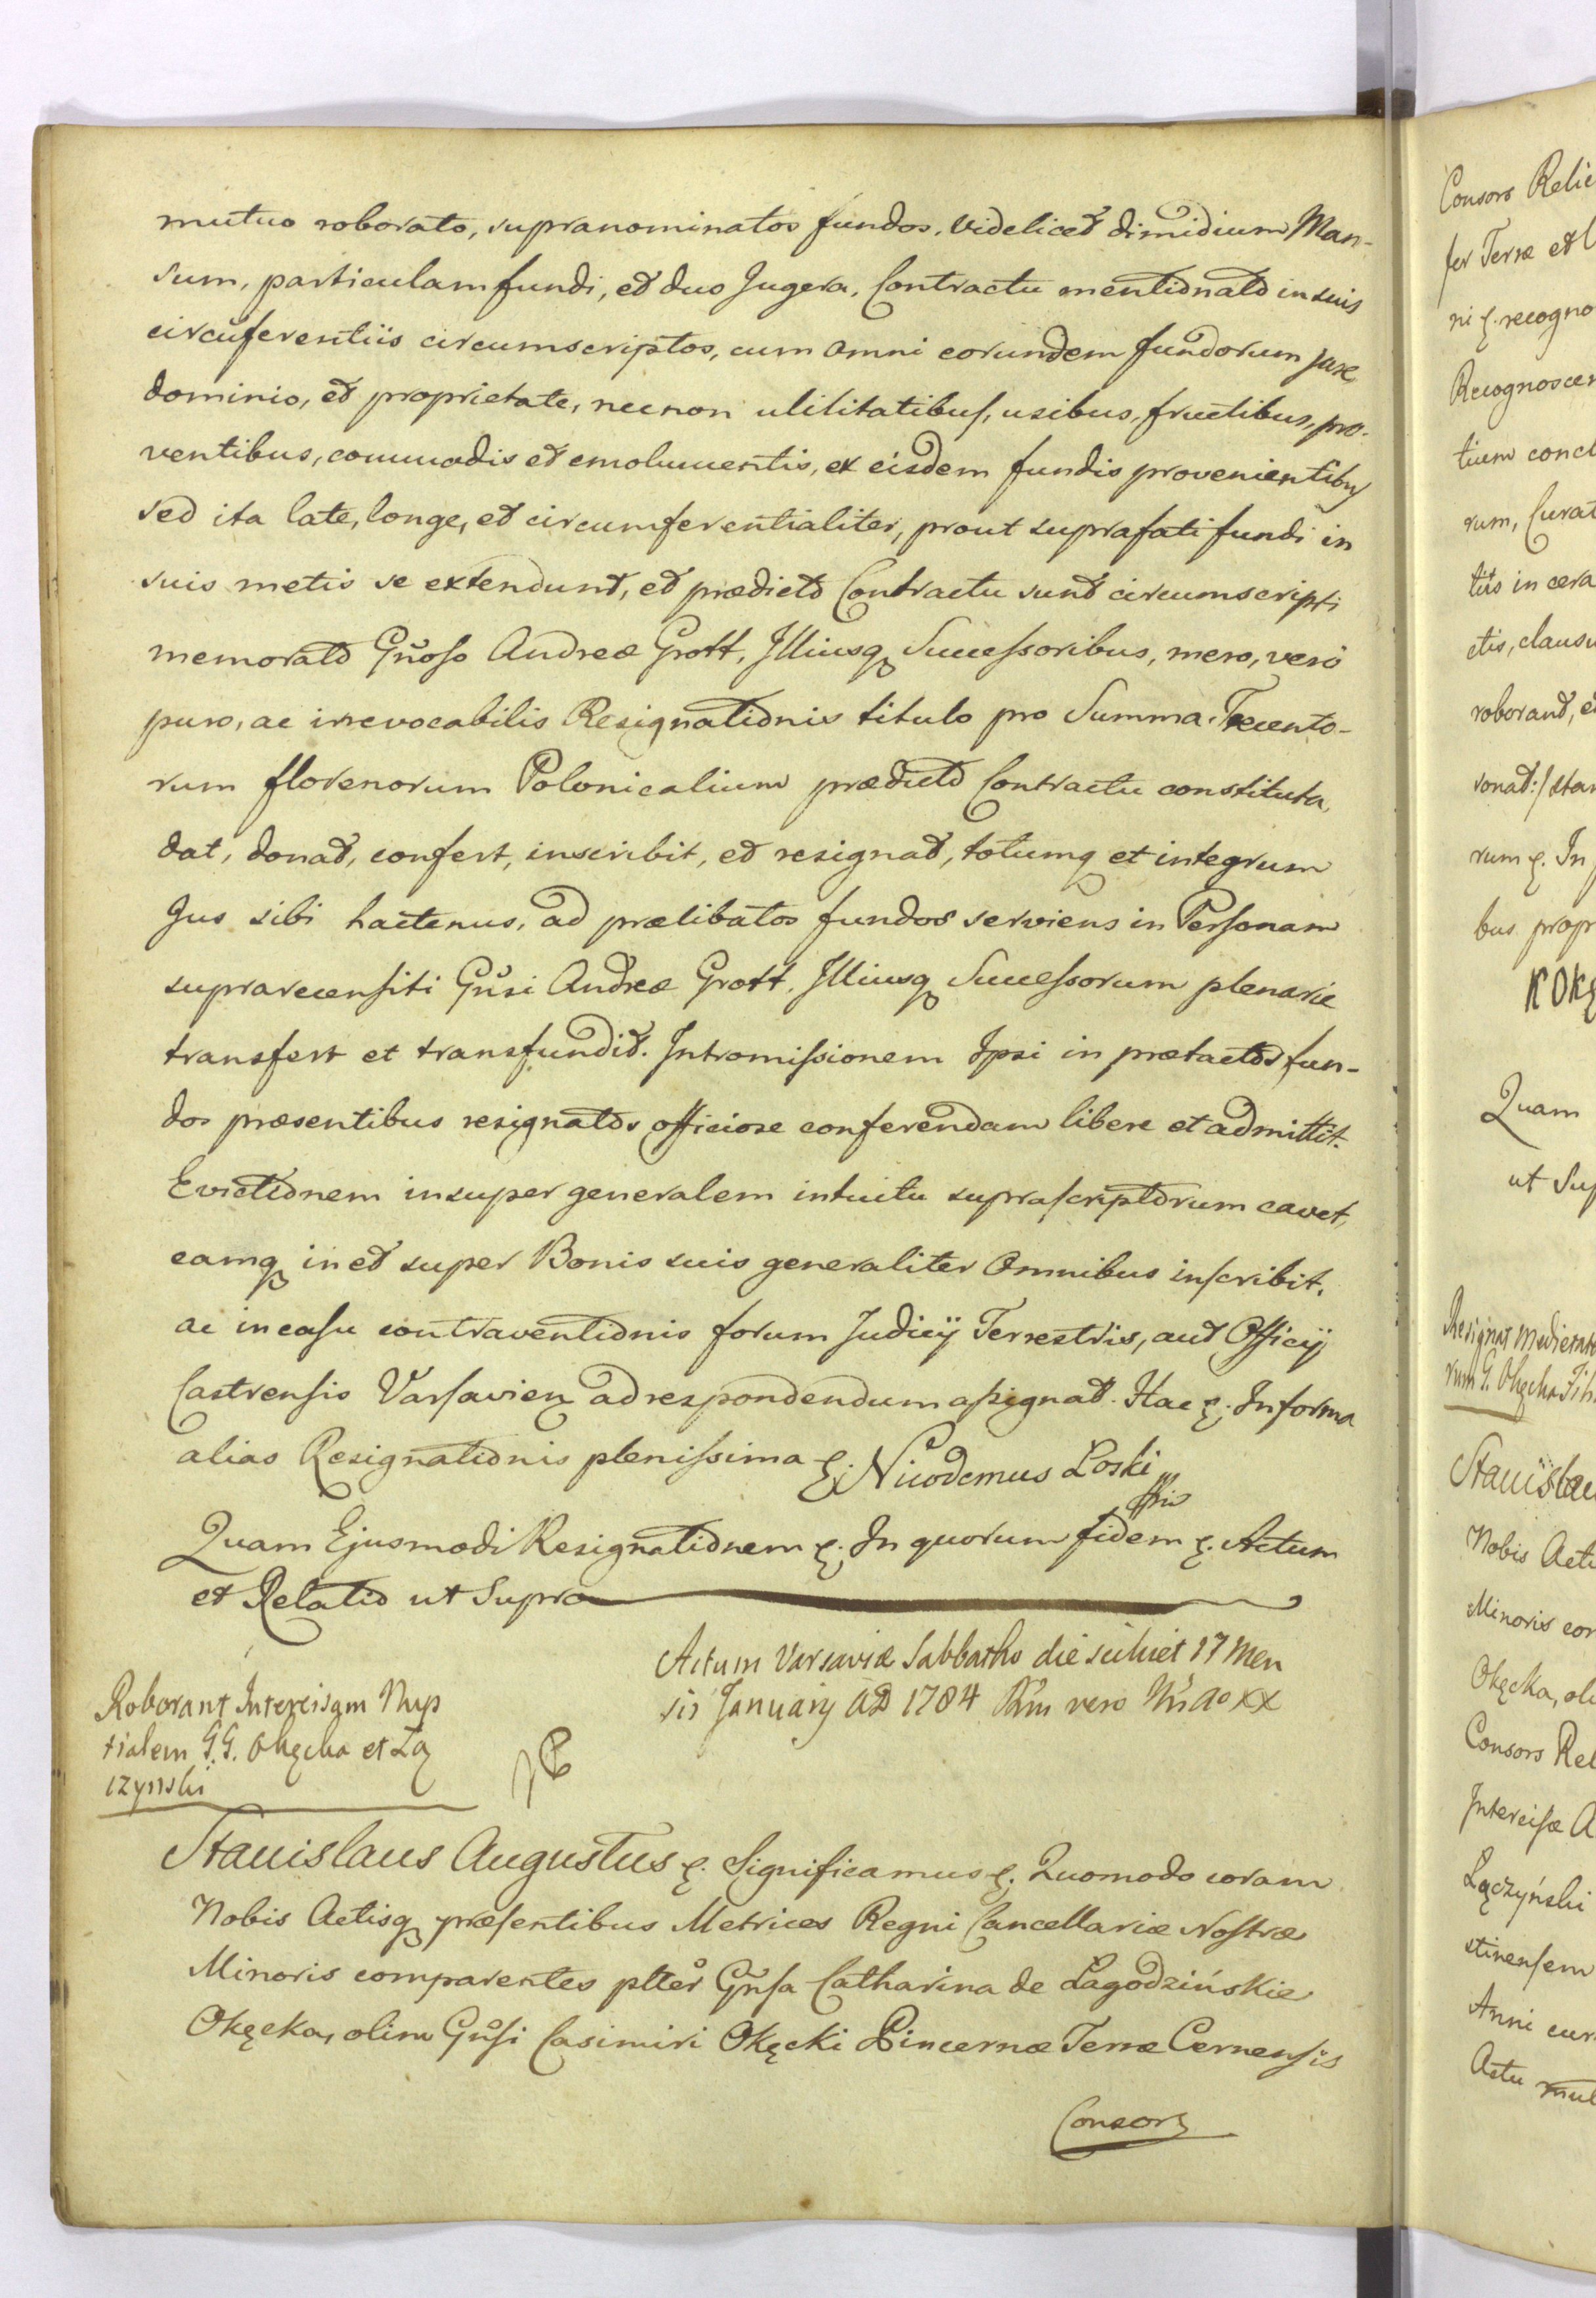 mutuo roborato, supranominatos fundos, videlicet dimidium Man-
sum, particulam fundi, et duo Jugera, Contractu mentionato in suis
circuferentiis circumscriptos, cum omni eorundem fundorum jure,
dominio, et proprietate, necnon utilitatibus, usibus, fructibus, pro-
ventibus, commodis et emolumentis, ex eisdem fundis provenientibus
sed ita late, longe, et circumferentialiter, prout suprafati fundi in
suis metis se extendunt, et prædicto Contractu sunt circumscripti
memorato Gñoso Andreæ Grott, Illiusq Successoribus, mero, vero
puro, ac irrevocabilis Resignationis titulo pro Summa Trecento-
rum florenorum Polonicalium prædicto Contractu constituta,
dat, donat, confert, inscribit, et resignat, totumq et integrum
Jus sibi hactenus, ad prælibatos fundos serviens in Personam
suprarecensiti Gñsi Andreæ Grott, Illiusq Successorum plenarie
transfert et transfundit. Intromissionem Ipsi in prætactos fun-
dos præsentibus resignatos officiose conferendam libere et admittit.
Evictionem insuper generalem intuitu suprascriptorum cavet,
eamq in et super Bonis suis generaliter Omnibus inscribit,
ac in casu contraventionis forum Judicij Terrestris, aut Officij
Castrensis Varsavien ad respondendum assignat. Hac &. In forma
alias Resignationis plenissima &. Nicodemus Łoski
Quam Ejusmodi Resignationem &. In quorum fidem &. Actum
et Relatio ut Supra
Actum Varsaviæ Sabbatho die scilicet 17 Men
sis January AD 1784 Rñi vero Nri Aº XX
Roborant Intercisam Nup
tialem G.G. Okęcka et Łą
czynski
Stanislaus Augustus &. Significamus &. Quomodo coram
Nobis Actisq præsentibus Metrices Regni Cancellariæ Nostræ
Minoris comparentes plter Gñsa Catharina de Łagodzińskie
Okęcka, olim Gñsi Casimiri Okęcki Pincernæ Terræ Cernensis
Consors
Consors Relic
fer Terræ et
ni &. recogno
Recognoscen
tium concl
rum, Curat
tiis in cera
ctis, clausu
roborand, e
sonat:/ stan
rum &. In
bus propr
K Okę
Quam
ut Sup
Resignat Medietat
rum G. Okęcka Fili
Stanislau
Nobis Acti
Minoris com
Okęcka, oli
Consors Rel
Intercisæ A
Łączyński
stinensem
Anni curr
Actu mut